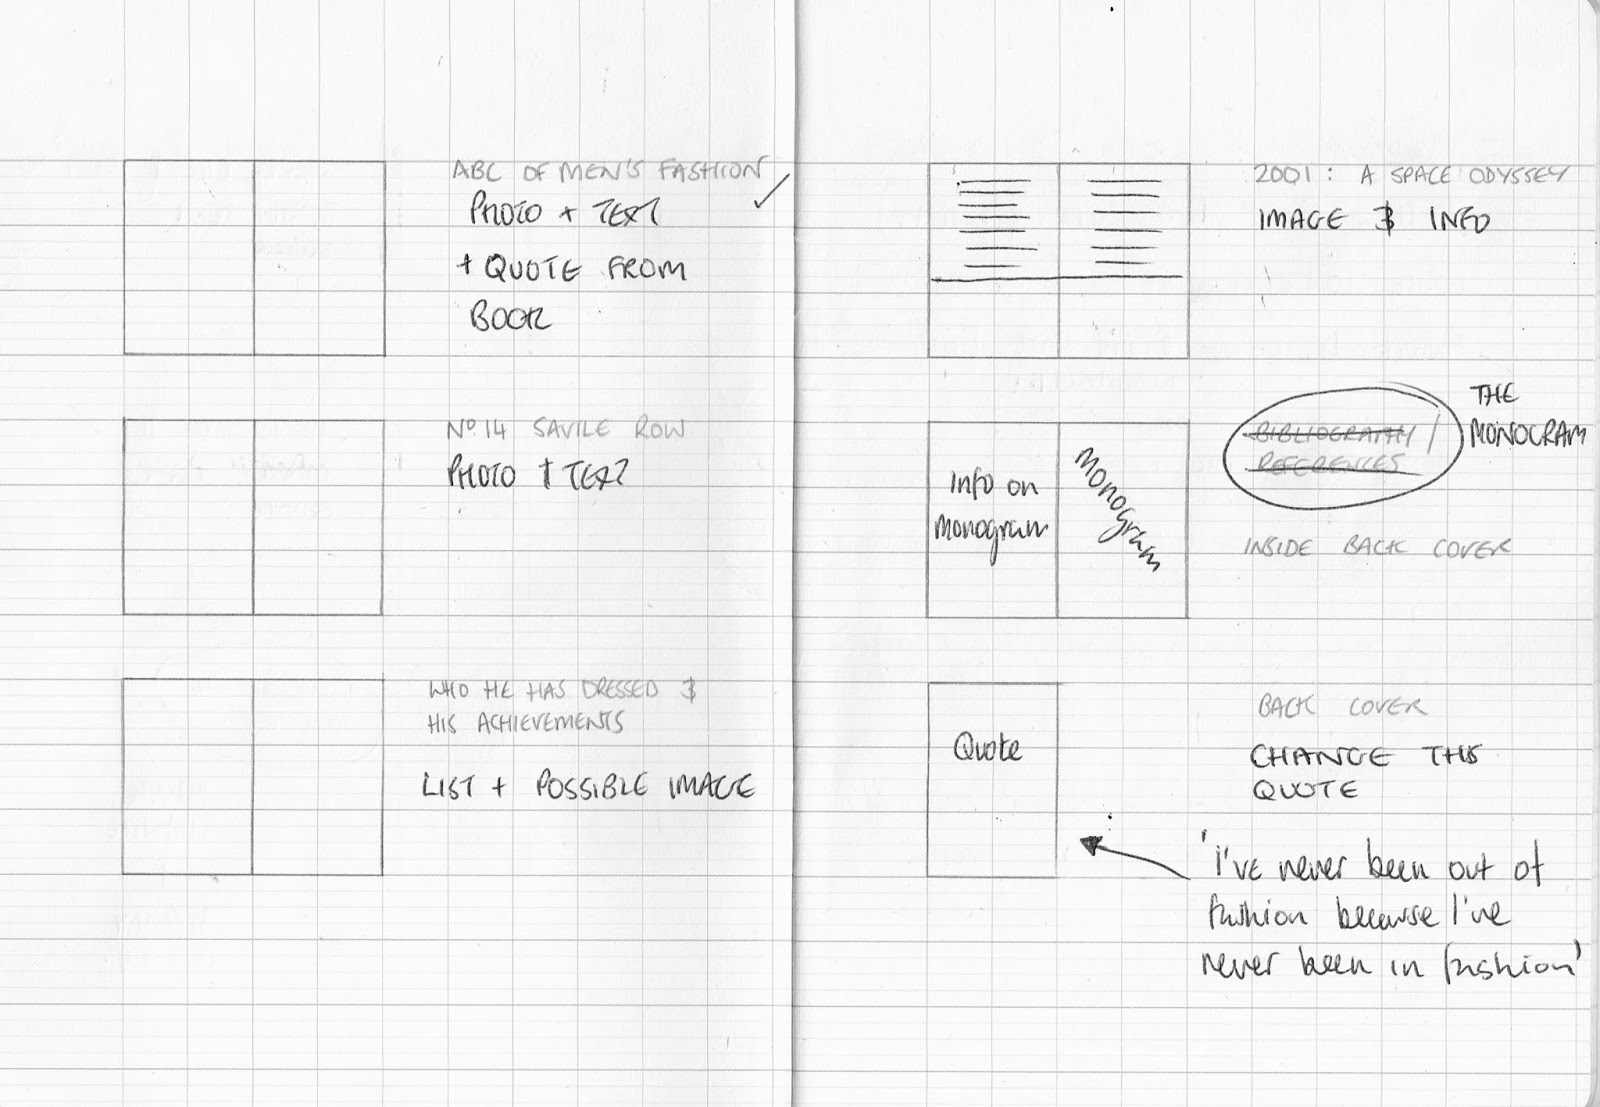 ABC OF MEN'S FASHION
PHOTO + TEXT
+ QUOTE FROM
BOOK
Nº 14 SAVILE ROW
PHOTO + TEXT
WHO HE HAS DRESSED &
HIS ACHIEVEMENTS
LIST + POSSIBLE IMAGE
2001: A SPACE ODYSSEY
IMAGE & INFO
THE
MONOGRAM
BIBLIOGRAPHY /
REFERENCES
Info on
monogram
Monogram
INSIDE BACK COVER
BACK COVER
Quote
CHANGE THIS
QUOTE
'I've never been out of
fashion because I've
never been in fashion'